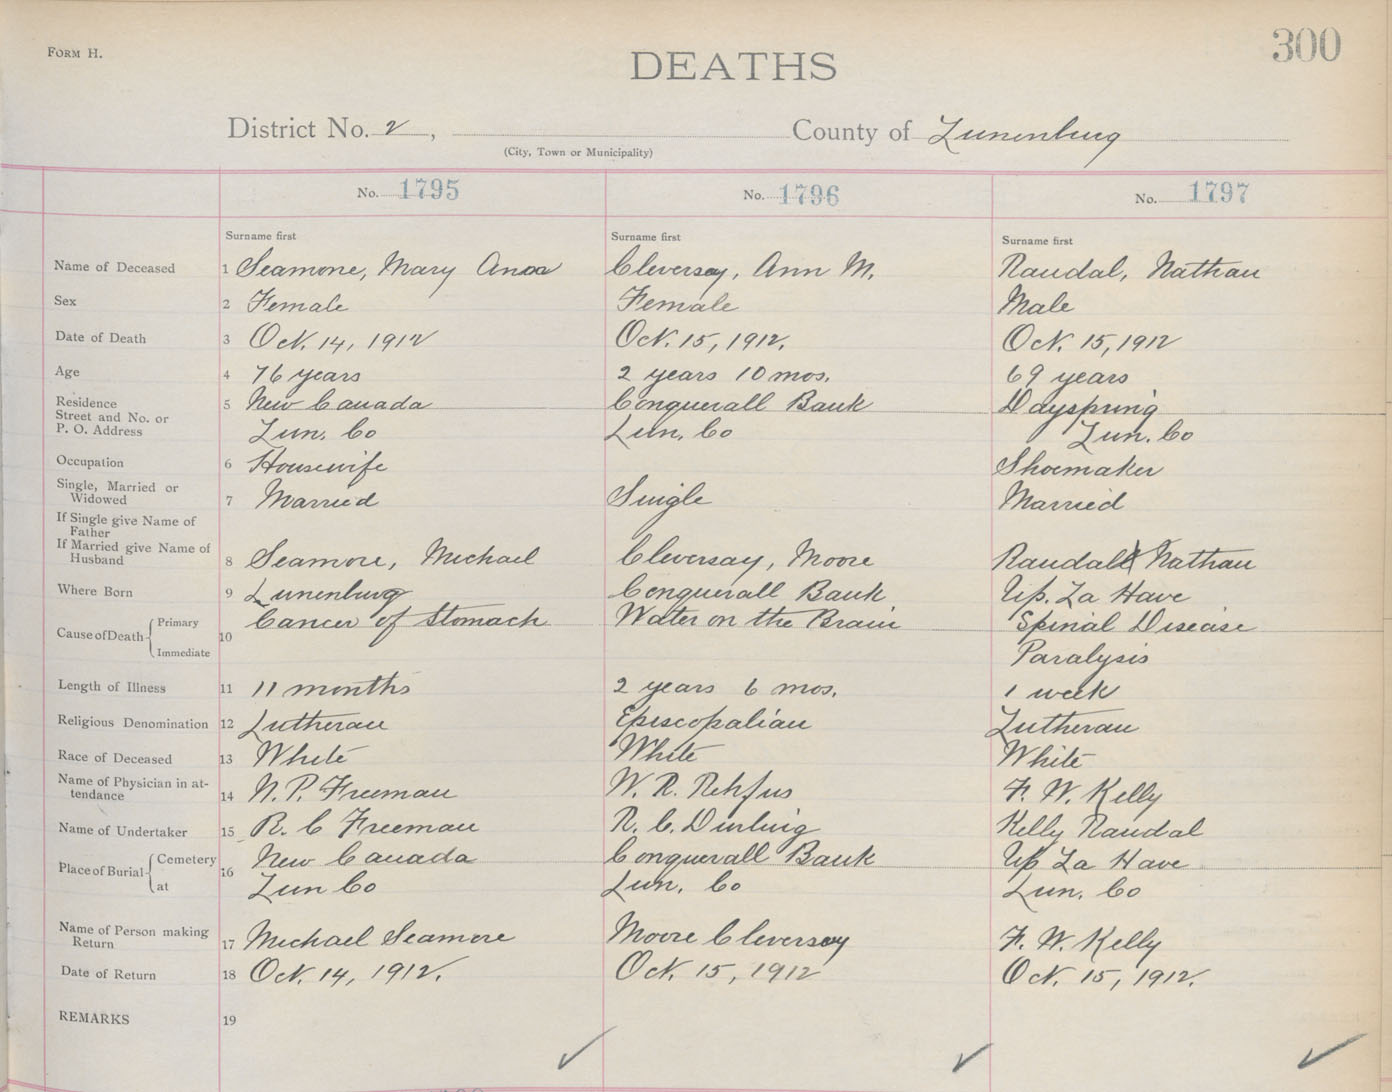 FORM H.
300
DEATHS
District No. 2, County of Lunenburg
(City, Town or Municipality)
No. 1795 No. 1796 No. 1797
Surname first Surname first Surname first
Name of Deceased 1 Seamone, Mary Cleversey, Ann M. Randal, Nathan
Sex 2 Female Female Male
Date of Death 3 Oct. 14, 1912 Oct. 15, 1912. Oct. 15, 1912
Age 4 76 years 2 years 10 mos. 69 years
Residence 5 New Canada Conquerall Bank Dayspring
Street and No. or
P. O. Address Lun. Co Lun. Co Lun. Co
Occupation 6 Housewife Shoemaker
Single, Married or
Widowed 7 Married Single Married
If Single give Name of
Father
If Married give Name of
Husband 8 Seamone, Michael Cleversay, Moore Randall Nathan
Where Born 9 Lunenburg Conquerall Bank Up. La Have
Cause of Death Primary 10 Cancer of Stomach Water on the Brain Spinal Disease
Immediate Paralysis
Length of Illness 11 11 months 2 years 6 mos. 1 week
Religious Denomination 12 Lutheran Episcopalian Lutheran
Race of Deceased 13 White White White
Name of Physician in at-
tendance 14 N. P. Freeman W. R. Rehfus F. W. Kelly
Name of Undertaker 15 R. C Freeman R. C. Kelly Randal
Place of Burial Cemetery 16 New Canada Conquerall Bank Up La Have
at Lun Co Lun. Co Lun. Co
Name of Person making
Return 17 Michael Seamone Moore Cleversey F. W. Kelly
Date of Return 18 Oct. 14, 1912. Oct. 15, 1912 Oct. 15, 1912.
REMARKS 19